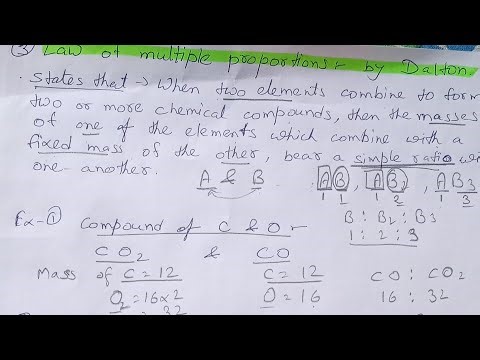 ③ Law of multiple proportions :- by Dalton.
• States that → When two elements combine to form
two or more chemical compounds, then the masses
of one of the elements which combine with a
fixed mass of the other, bear a simple ratio wi
one-another.
A & B
AB, AB2, AB3
1 1 1 2 1 3
B : B2 : B3
1 : 2 : 3
Ex-① Compound of C & O :-
CO2 & CO
Mass of C = 12 C = 12 CO : CO2
O2 = 16×2 O = 16 16 : 32
= 32